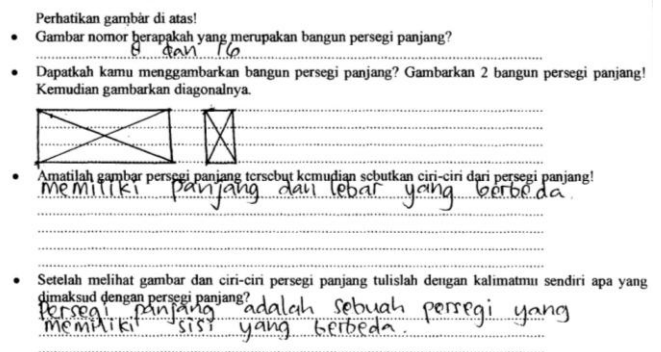 Perhatikan gambar di atas!
Gambar nomor berapakah yang merupakan bangun persegi panjang?
8 dan 16
Dapatkah kamu menggambarkan bangun persegi panjang? Gambarkan 2 bangun persegi panjang!
Kemudian gambarkan diagonalnya.
Amatilah gambar persegi panjang tersebut kemudian sebutkan ciri-ciri dari persegi panjang!
memiliki panjang dan lebar yang berbeda.
Setelah melihat gambar dan ciri-ciri persegi panjang tulislah dengan kalimatmu sendiri apa yang
dimaksud dengan persegi panjang?
Persegi panjang adalah sebuah persegi yang
memiliki sisi yang berbeda.